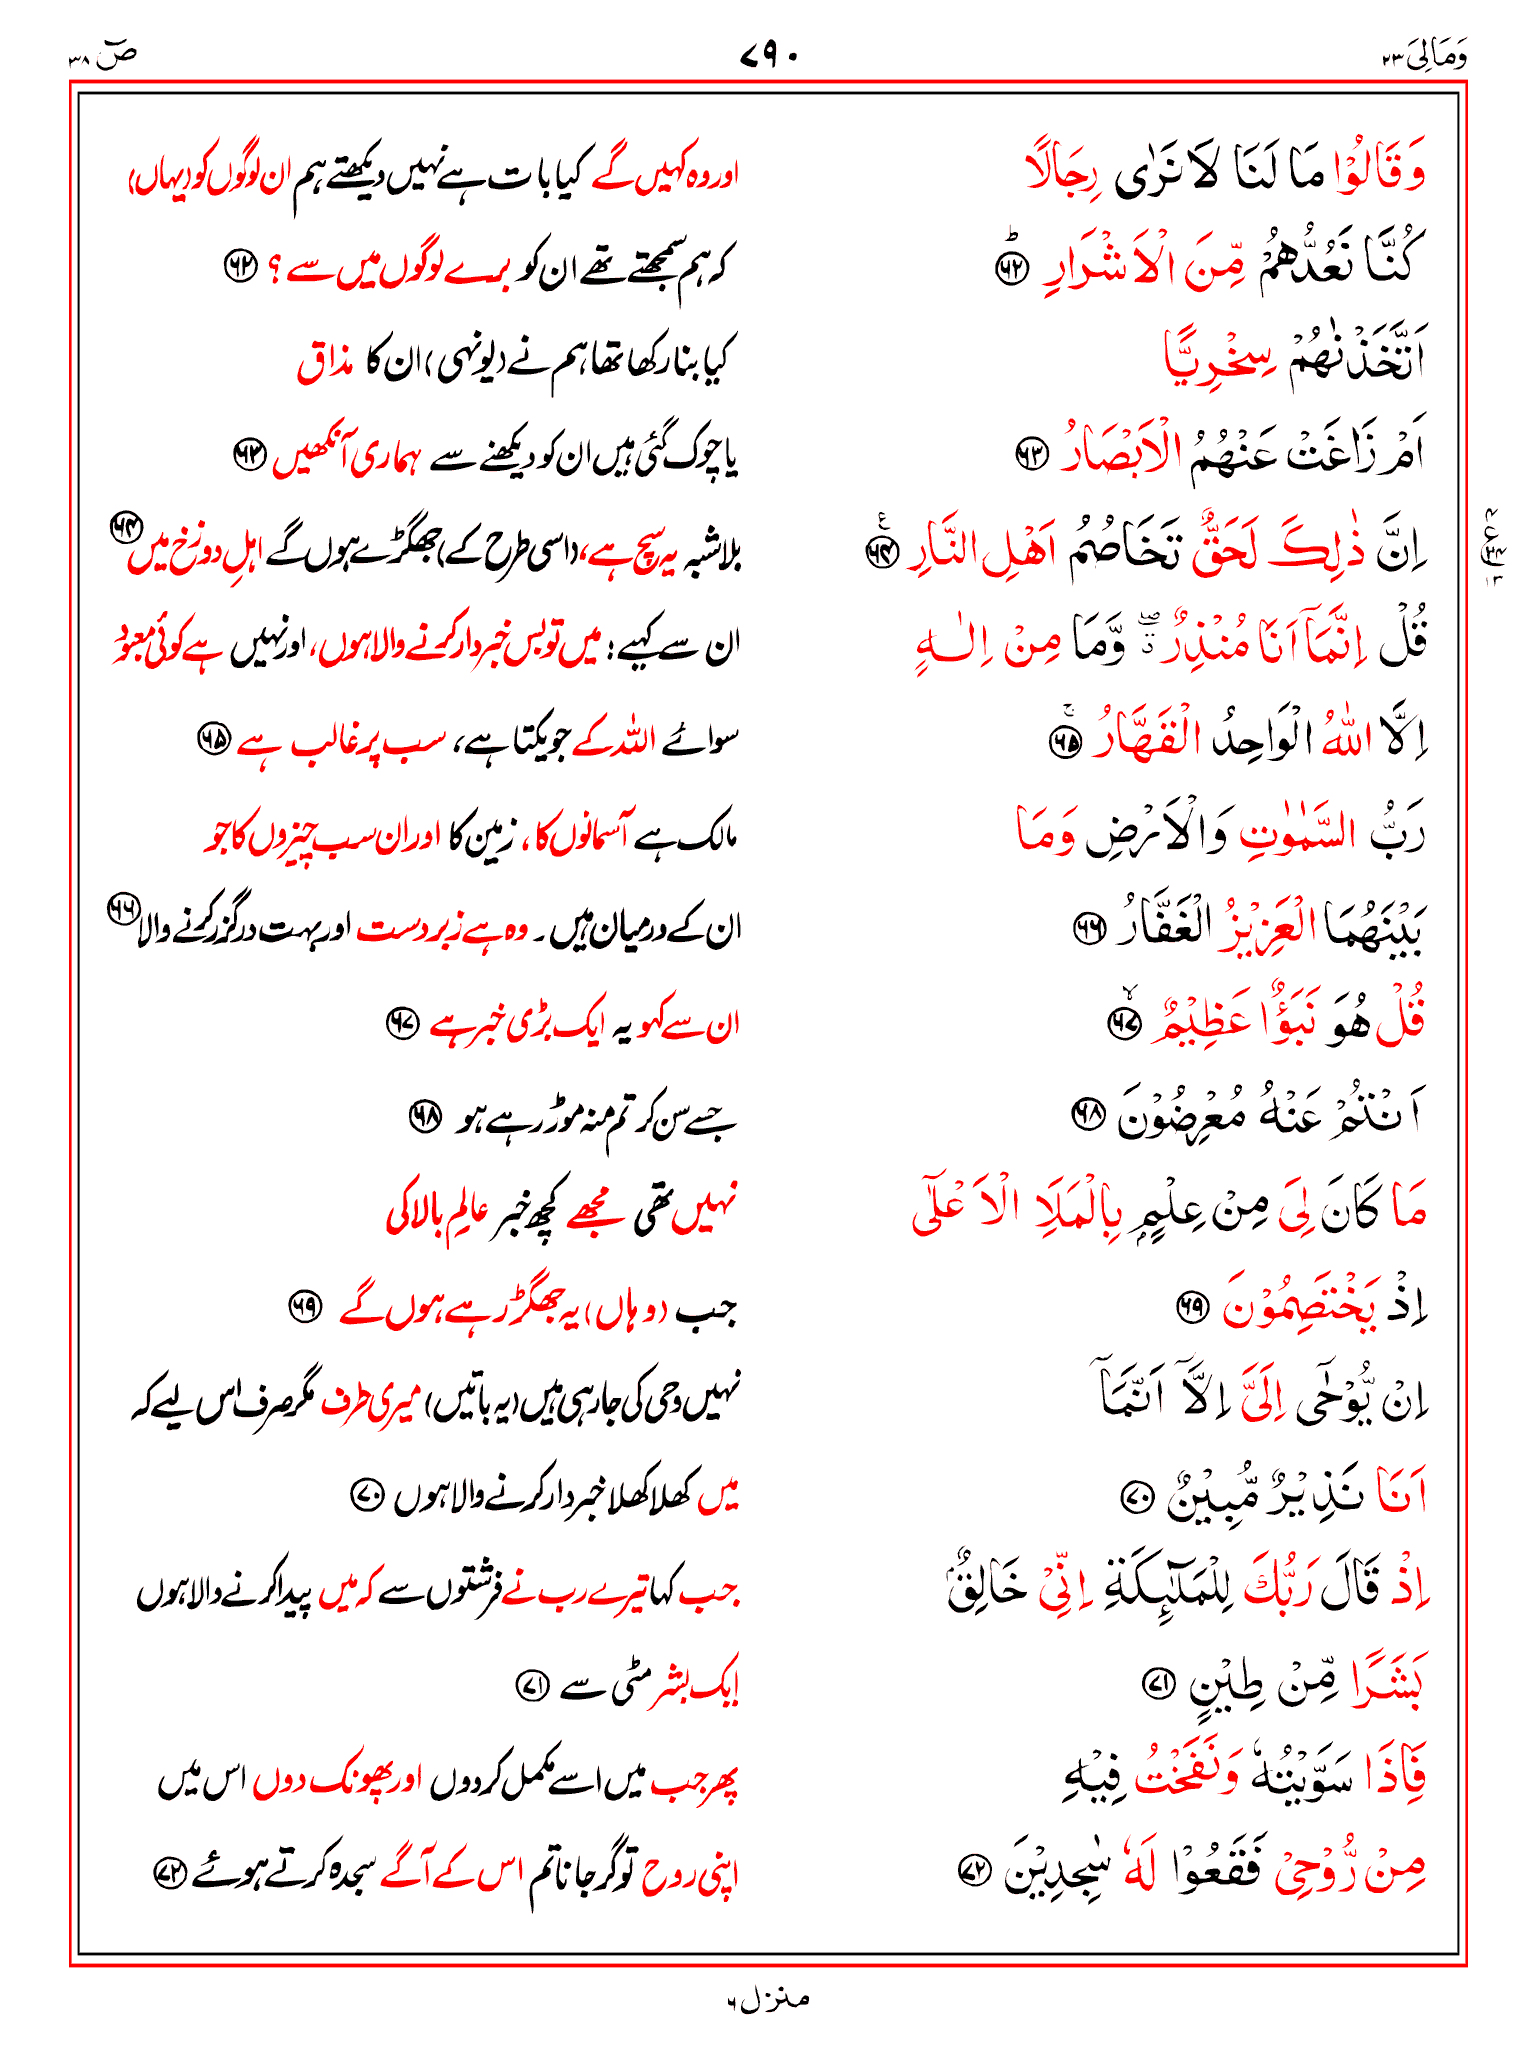 وَمَالِیَ ۲۳ ۷۹۰ صٓ ۳۸
وَقَالُوْا مَا لَنَا لَا نَرٰى رِجَالًا اور وہ کہیں گے کیا بات ہے نہیں دیکھتے ہم ان لوگوں کو (یہاں)
كُنَّا نَعُدُّهُمْ مِّنَ الْاَشْرَارِ ؕ ۶۲ کہ ہم سمجھتے تھے ان کو برے لوگوں میں سے ؟ ۶۲
اَتَّخَذْنٰهُمْ سِخْرِيًّا کیا بنا رکھا تھا ہم نے (یونہی) ان کا مذاق
اَمْ زَاغَتْ عَنْهُمُ الْاَبْصَارُ ۶۳ یا چوک گئی ہیں ان کو دیکھنے سے ہماری آنکھیں ۶۳
اِنَّ ذٰلِكَ لَحَقٌّ تَخَاصُمُ اَهْلِ النَّارِ ۶۴ بلا شبہ یہ سچ ہے، (اسی طرح کے) جھگڑے ہوں گے اہلِ دوزخ میں ۶۴
قُلْ اِنَّمَاۤ اَنَا مُنْذِرٌ ۖۗ وَّمَا مِنْ اِلٰهٍ ان سے کہیے: میں تو بس خبردار کرنے والا ہوں، اور نہیں ہے کوئی معبود
اِلَّا اللّٰهُ الْوَاحِدُ الْقَهَّارُ ۚ ۶۵ سوائے اللہ کے جو یکتا ہے، سب پر غالب ہے ۶۵
رَبُّ السَّمٰوٰتِ وَالْاَرْضِ وَمَا مالک ہے آسمانوں کا، زمین کا اور ان سب چیزوں کا جو
بَيْنَهُمَا الْعَزِيْزُ الْغَفَّارُ ۶۶ ان کے درمیان ہیں۔ وہ ہے زبردست اور بہت درگزر کرنے والا ۶۶
قُلْ هُوَ نَبَؤٌا عَظِيْمٌ ۙ ۶۷ ان سے کہو یہ ایک بڑی خبر ہے ۶۷
اَنْتُمْ عَنْهُ مُعْرِضُوْنَ ۶۸ جسے سن کر تم منہ موڑ رہے ہو ۶۸
مَا كَانَ لِىَ مِنْ عِلْمٍۭ بِالْمَلَاِ الْاَعْلٰٓى نہیں تھی مجھے کچھ خبر عالمِ بالا کی
اِذْ يَخْتَصِمُوْنَ ۶۹ جب (وہاں) یہ جھگڑ رہے ہوں گے ۶۹
اِنْ يُّوْحٰٓى اِلَىَّ اِلَّاۤ اَنَّمَاۤ نہیں وحی کی جا رہی ہیں (یہ باتیں) میری طرف مگر صرف اس لیے کہ
اَنَا نَذِيْرٌ مُّبِيْنٌ ۷۰ میں کھلا کھلا خبردار کرنے والا ہوں ۷۰
اِذْ قَالَ رَبُّكَ لِلْمَلٰٓئِكَةِ اِنِّىْ خَالِقٌۢ جب کہا تیرے رب نے فرشتوں سے کہ میں پیدا کرنے والا ہوں
بَشَرًا مِّنْ طِيْنٍ ۷۱ ایک بشر مٹی سے ۷۱
فَاِذَا سَوَّيْتُهٗ وَنَفَخْتُ فِيْهِ پھر جب میں اسے مکمل کر دوں اور پھونک دوں اس میں
مِنْ رُّوْحِىْ فَقَعُوْا لَهٗ سٰجِدِيْنَ ۷۲ اپنی روح تو گر جانا تم اس کے آگے سجدہ کرتے ہوئے ۷۲
منزل ۶